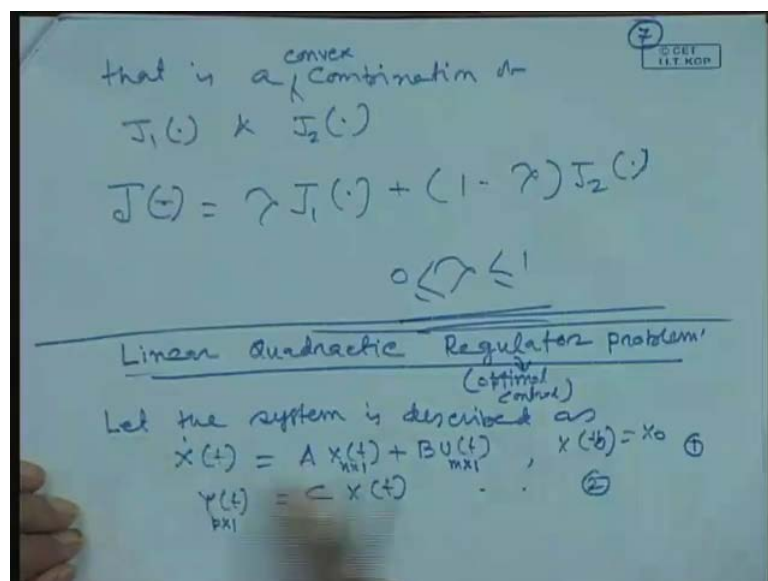 7
© CET
I.I.T. KGP
that is a convex Combination
J₁(·) & J₂(·)
J(·) = λ J₁(·) + (1 - λ) J₂(·)
0 ≤ λ ≤ 1
Linear Quadractic Regulator problem
(optimal control)
Let the system is described as
ẋ(t) = A x(t) + B u(t), x(t₀) = x₀ ①
n×1 m×1
Y(t) = C x(t) . . ②
p×1